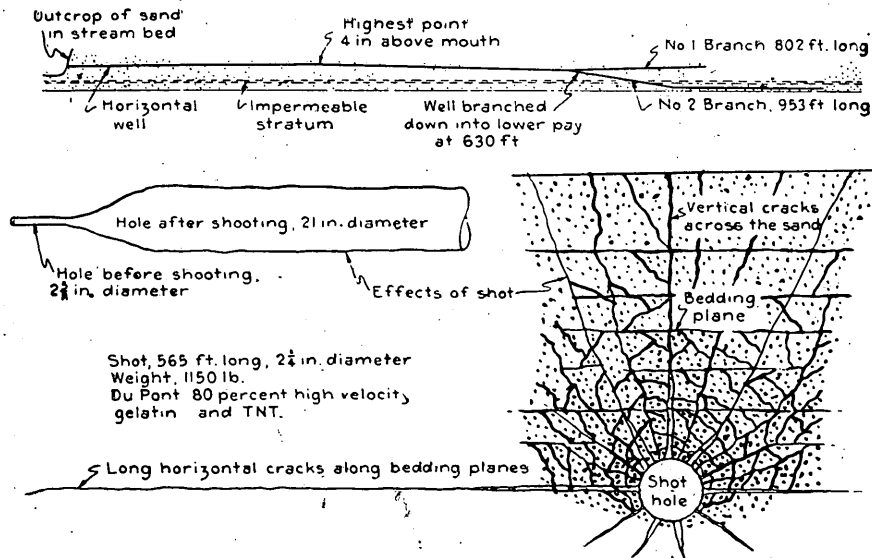 Outcrop of sand
in stream bed
Highest point
4 in above mouth
No 1 Branch 802 ft. long
Horizontal
well
Impermeable
stratum
Well branched
down into lower pay
at 630 ft
No 2 Branch, 953 ft long
Hole after shooting, 21 in. diameter
Hole before shooting,
in. diameter
Effects of shot
Vertical cracks
across the sand
Bedding
plane
Shot, 565 ft. long, 2¼ in. diameter
Weight, 1150 lb.
Du Pont 80 percent high velocity
gelatin and TNT.
Long horizontal cracks along bedding planes
Shot
hole